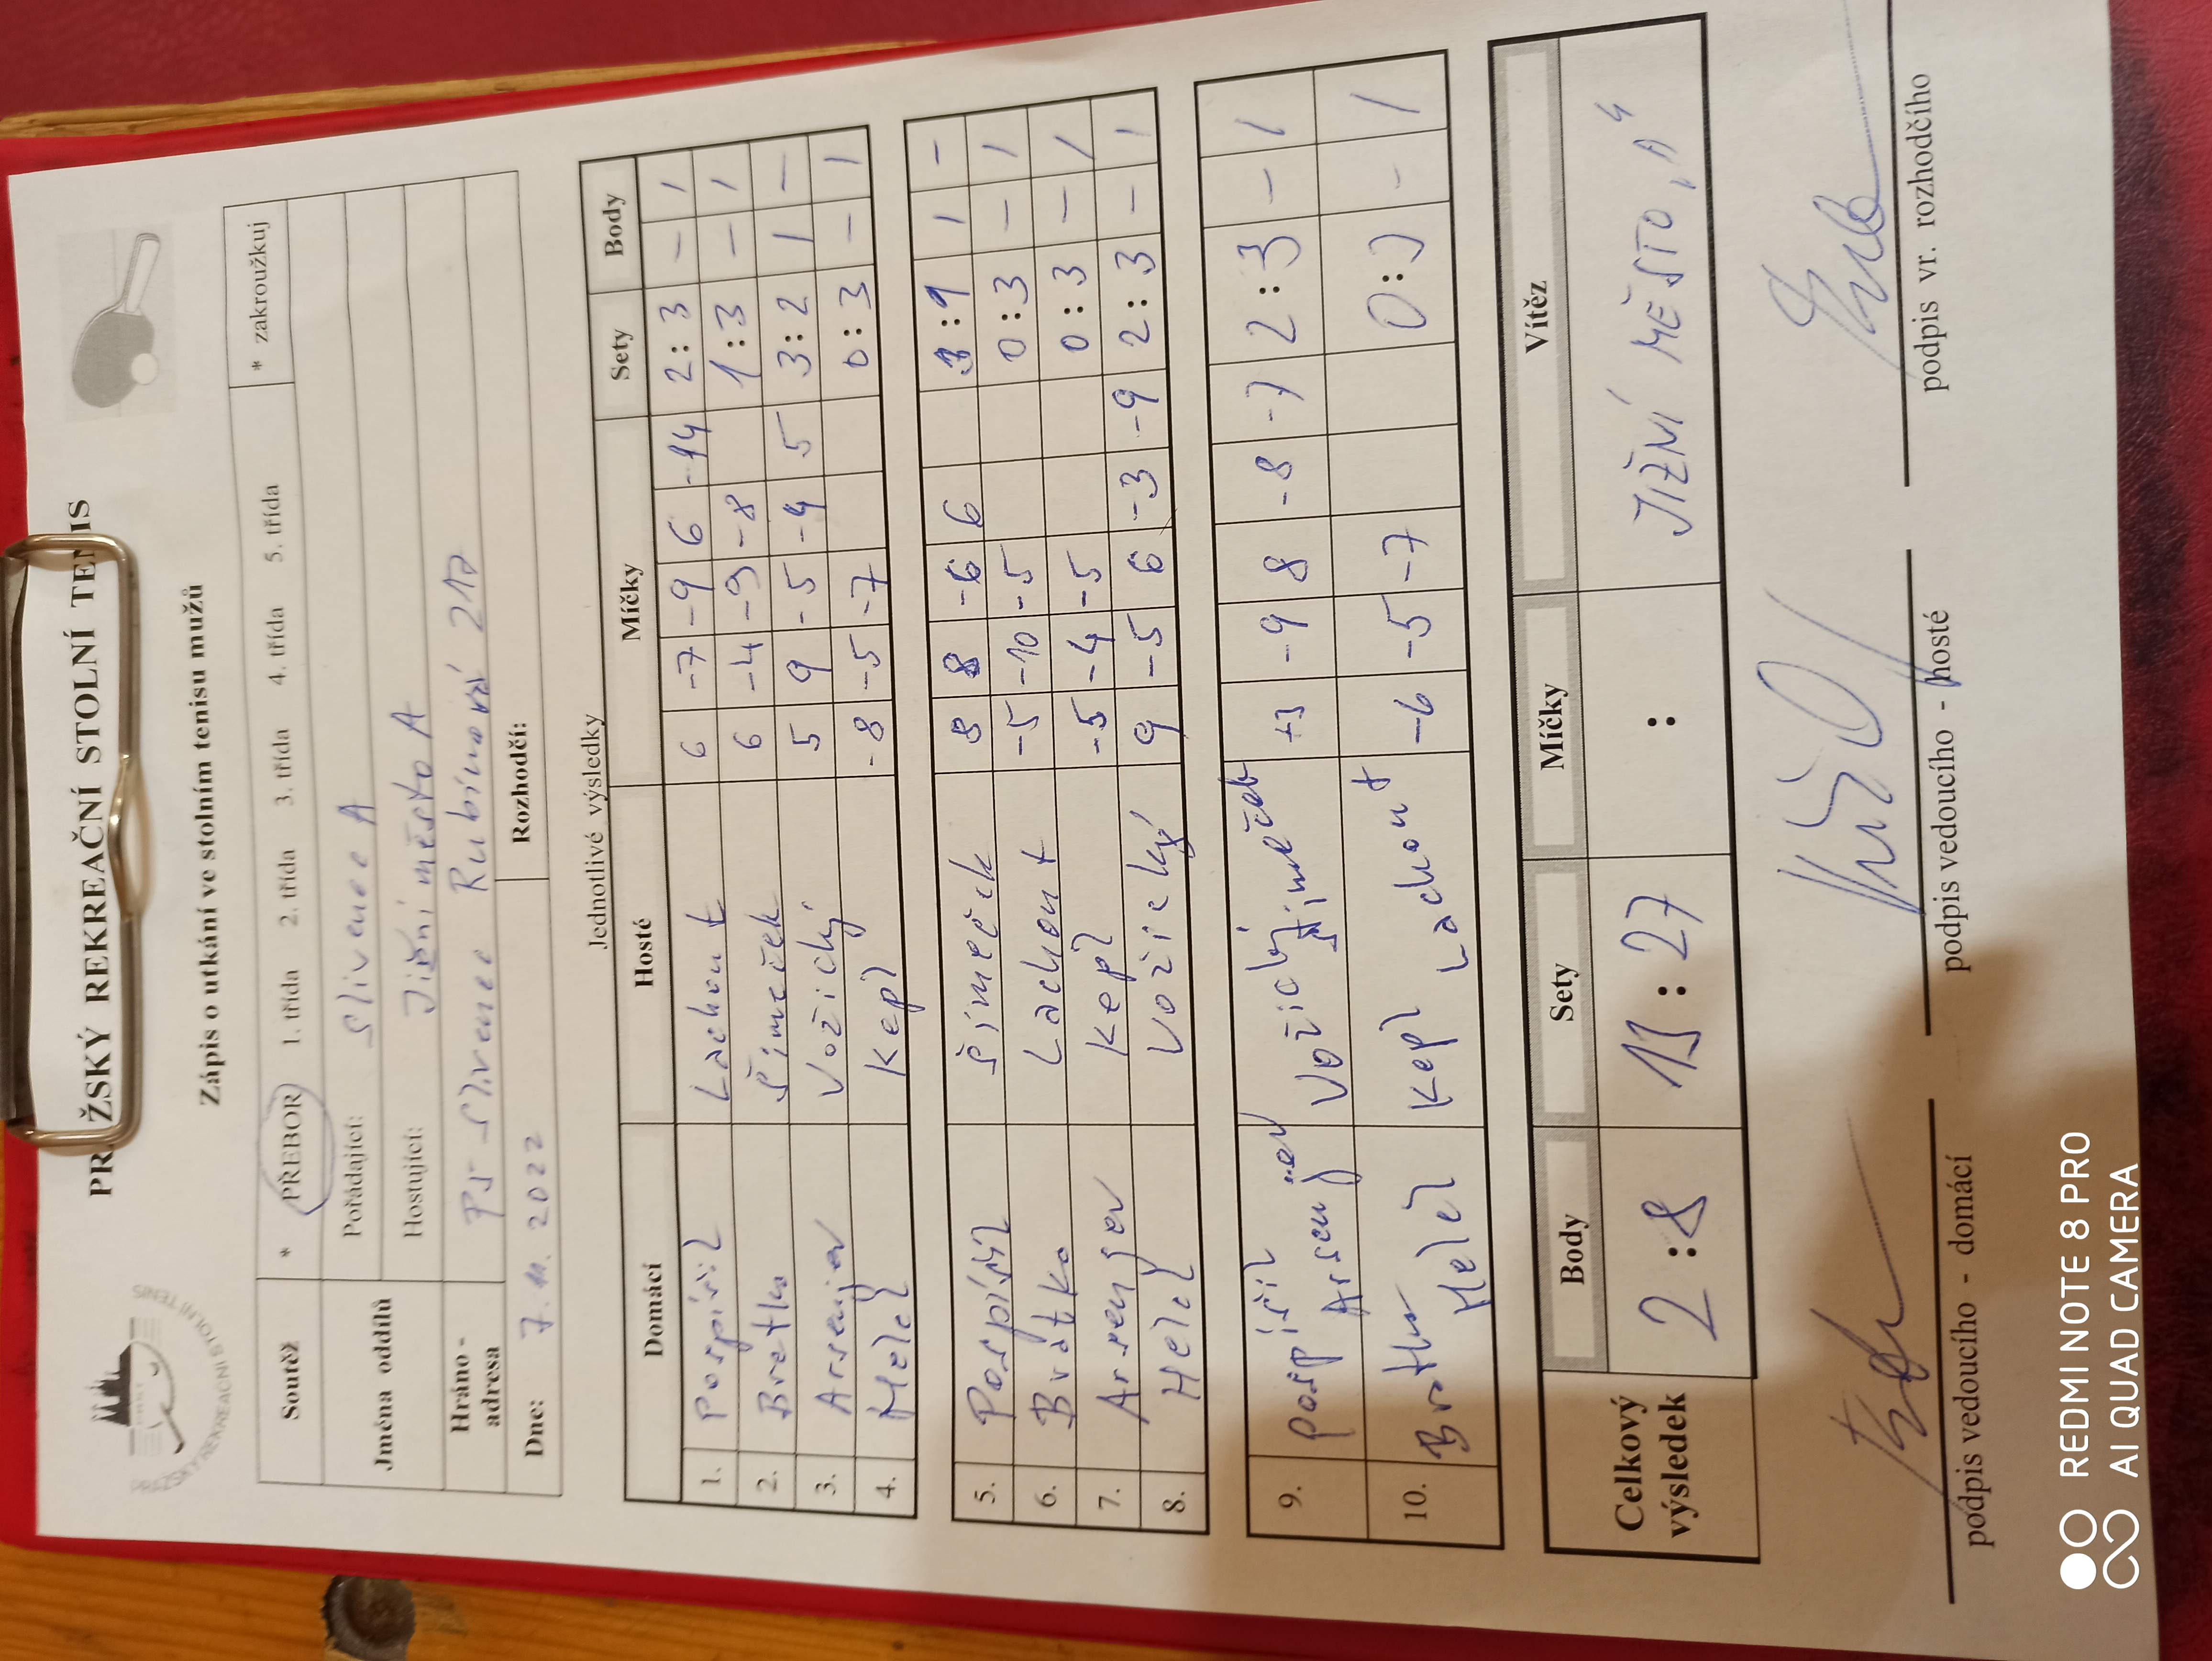 PRAŽSKÝ REKREAČNÍ STOLNÍ TENIS
Zápis o utkání ve stolním tenisu mužů
Soutěž * PŘEBOR 1. třída 2. třída 3. třída 4. třída 5. třída * zakroužkuj
Jména oddílů Pořádající: Slivenec A
Hostující: Jižní město A
Hráno - adresa PJ - Slivenec Rubínová
Dne: 7. 11. 2022 Rozhodčí:
Jednotlivé výsledky
Domácí Hosté Míčky Sety Body
1. Pospíšil Lachout 6 -7 -9 6 -14 2:3 - 1
2. Bratka Šimeček 6 -4 -9 -8 1:3 - 1
3. Arsenjev Vožický 5 9 -5 -4 5 3:2 1 -
4. Helel Kepl -8 -5 -7 0:3 - 1
5. Pospíšil Šimeček 8 8 -6 6 3:1 1 -
6. Bratka Lachout -5 -10 -5 0:3 - 1
7. Arsenjev Kepl -5 -4 -5 0:3 - 1
8. Helel Vožický 9 -5 6 -3 -9 2:3 - 1
9. Pospíšil Arsenjev Vožický Šimeček +3 -9 8 -8 -7 2:3 - 1
10. Bratka Helel Kepl Lachout -6 -5 -7 0:3 - 1
Celkový výsledek Body Sety Míčky Vítěz
2:8 13:27 : JIŽNÍ MĚSTO „A“
podpis vedoucího - domácí podpis vedoucího - hosté podpis vr. rozhodčího
REDMI NOTE 8 PRO
AI QUAD CAMERA